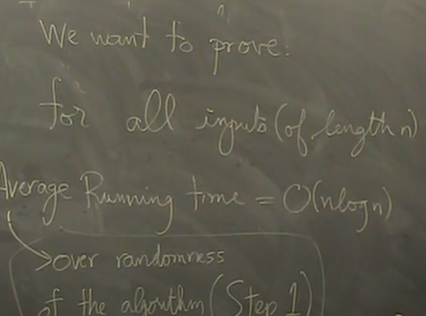 We want to prove:
for all inputs (of length n)
Average Running time = O(nlogn)
over randomness
of the algorithm (Step 1)